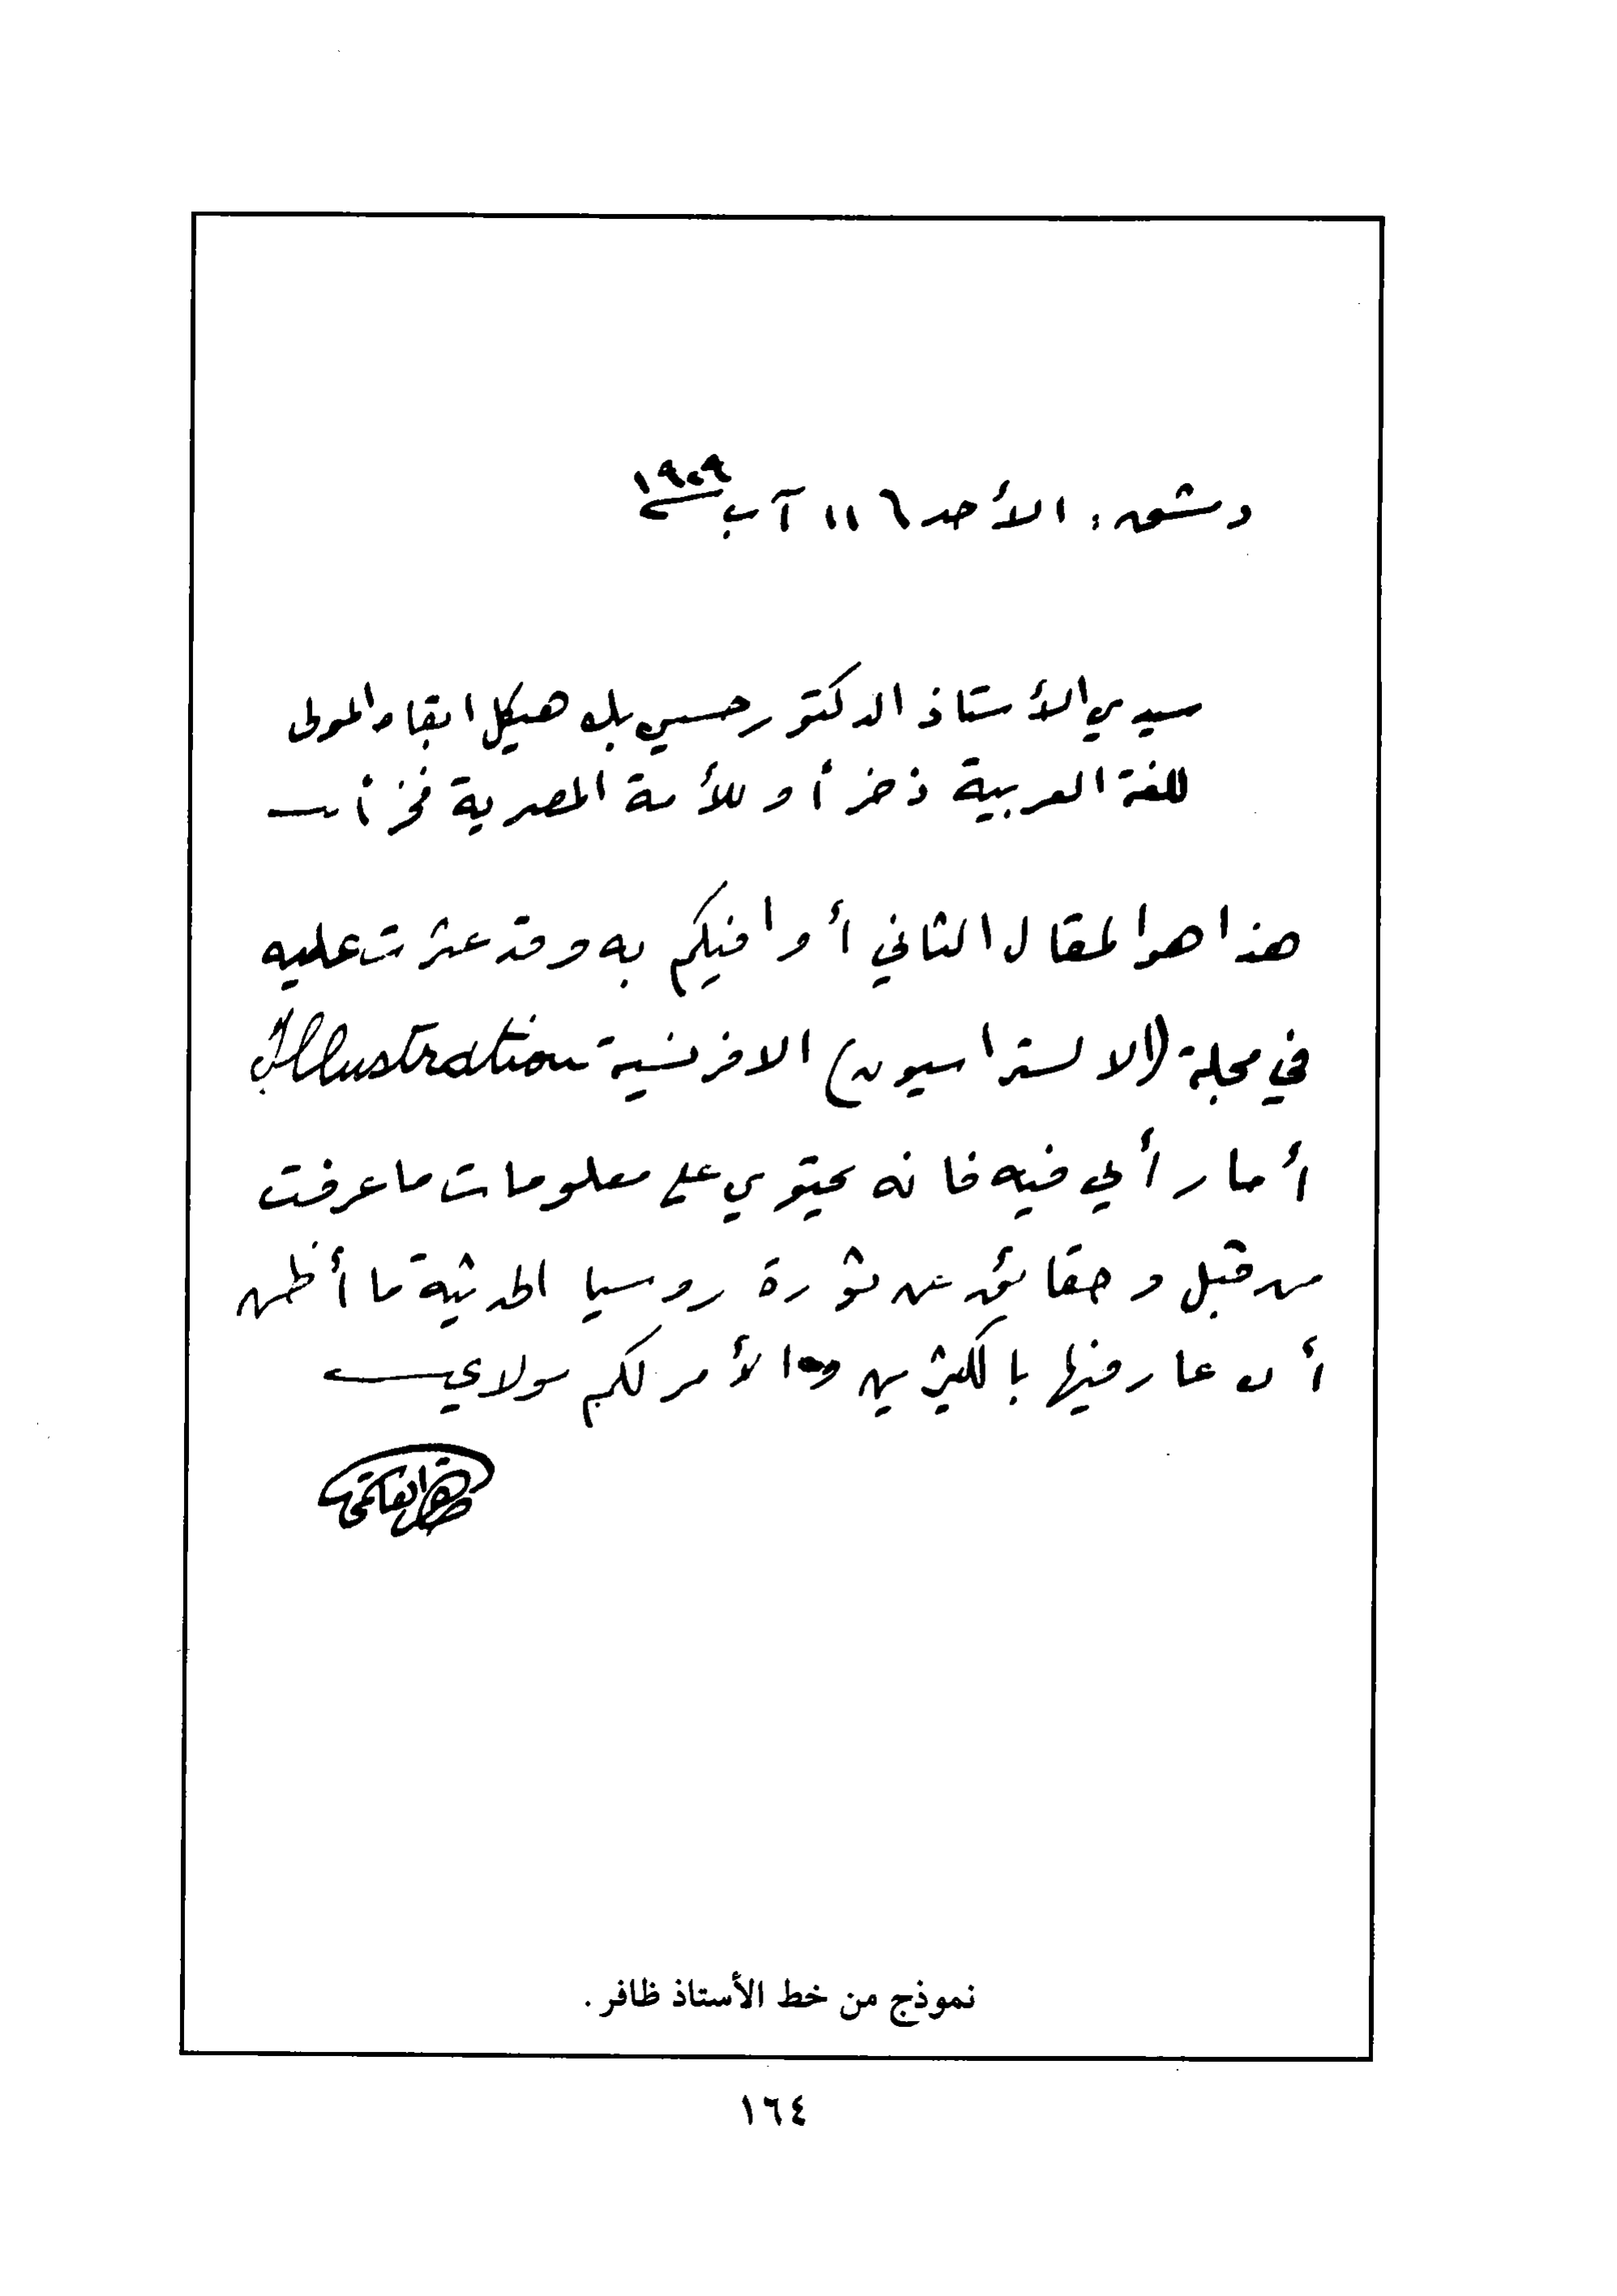 دمشق: الأحد ١١ آب
سيدي الأستاذ الدكتور حسين بك هيكل ابقاه المولى
للغة العربية ذخراً وللأمة المصرية فخراً
هذا هو المقال الثاني أوافيكم به وقد عثرت عليه
في مجلة (الالستراسيون) الافرنسية Illustration
أما رأيي فيه فانه يحتوي على معلومات ما عرفت
من قبل وحقائق عن ثورة روسيا الحديثة ما أظن
أن عارفيها بالكثيرين والأمر لكم مولاي
ظافر القاسمي
نموذج من خط الأستاذ ظافر .
١٦٤